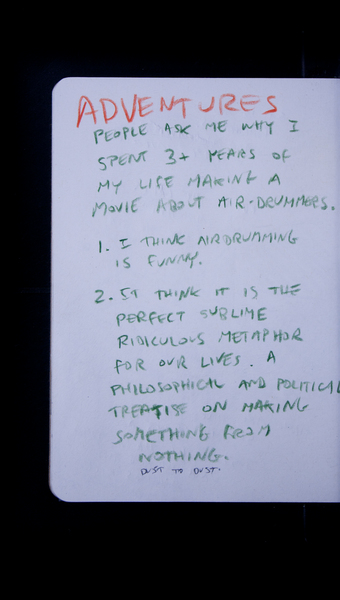 ADVENTURES
PEOPLE ASK ME WHY I
SPENT 3+ YEARS OF
MY LIFE MAKING A
MOVIE ABOUT AIR-DRUMMERS.
1. I THINK AIRDRUMMING
IS FUNNY.
2. I THINK IT IS THE
PERFECT SUBLIME
RIDICULOUS METAPHOR
FOR OUR LIVES. A
PHILOSOPHICAL AND POLITICAL
TREATISE ON MAKING
SOMETHING FROM
NOTHING.
DUST TO DUST.